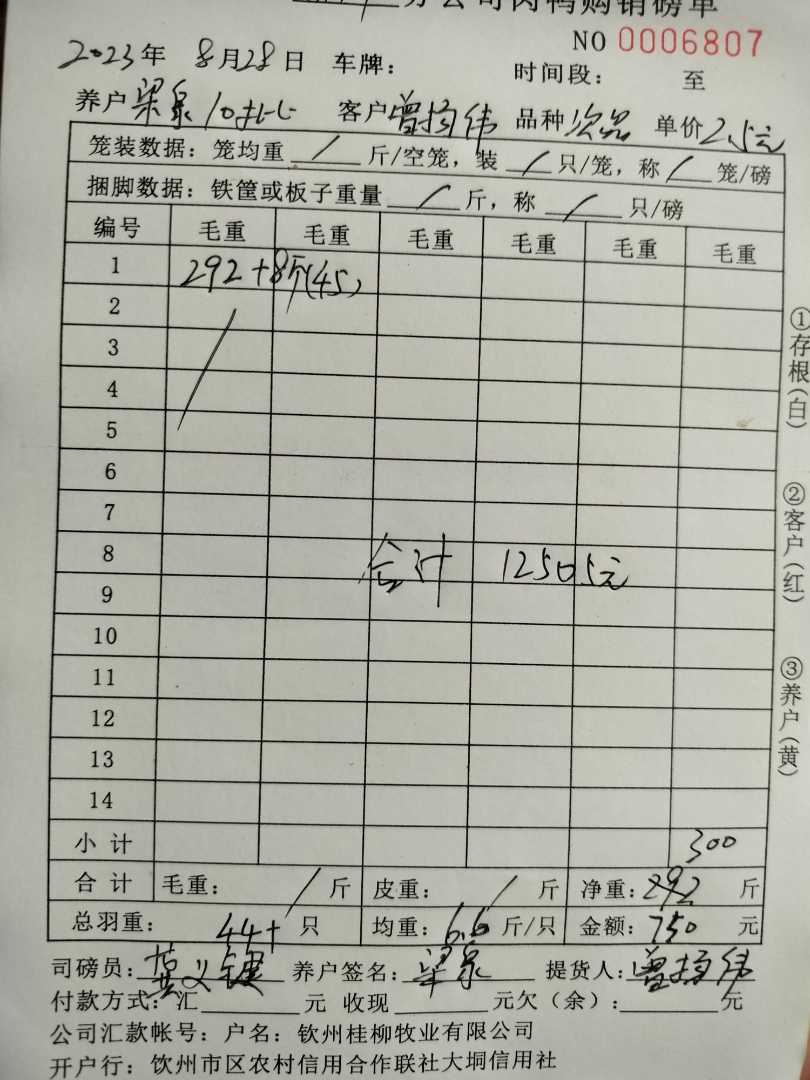 分公司肉鸭购销磅单
NO 0006807
2023年 8月28日 车牌: 时间段: 至
养户 梁泉 10 客户 曾扬伟 品种 次品 单价 2.5元
笼装数据: 笼均重 / 斤/空笼, 装 / 只/笼, 称 / 笼/磅
捆脚数据: 铁筐或板子重量 / 斤, 称 / 只/磅
编号 毛重 毛重 毛重 毛重 毛重 毛重
1 292+8斤(45)
2
3
4
5
6
7
8 合计 12505元
9
10
11
12
13
14
小计 300
合计 毛重: / 斤 皮重: / 斤 净重: 292 斤
总羽重: 44+ 只 均重: 6.6 斤/只 金额: 750 元
司磅员: 养户签名: 梁泉 提货人: 曾扬伟
付款方式: 汇 元 收现 元欠(余): 元
公司汇款帐号: 户名: 钦州桂柳牧业有限公司
开户行: 钦州市区农村信用合作联社大垌信用社
①存根(白)
②客户(红)
③养户(黄)